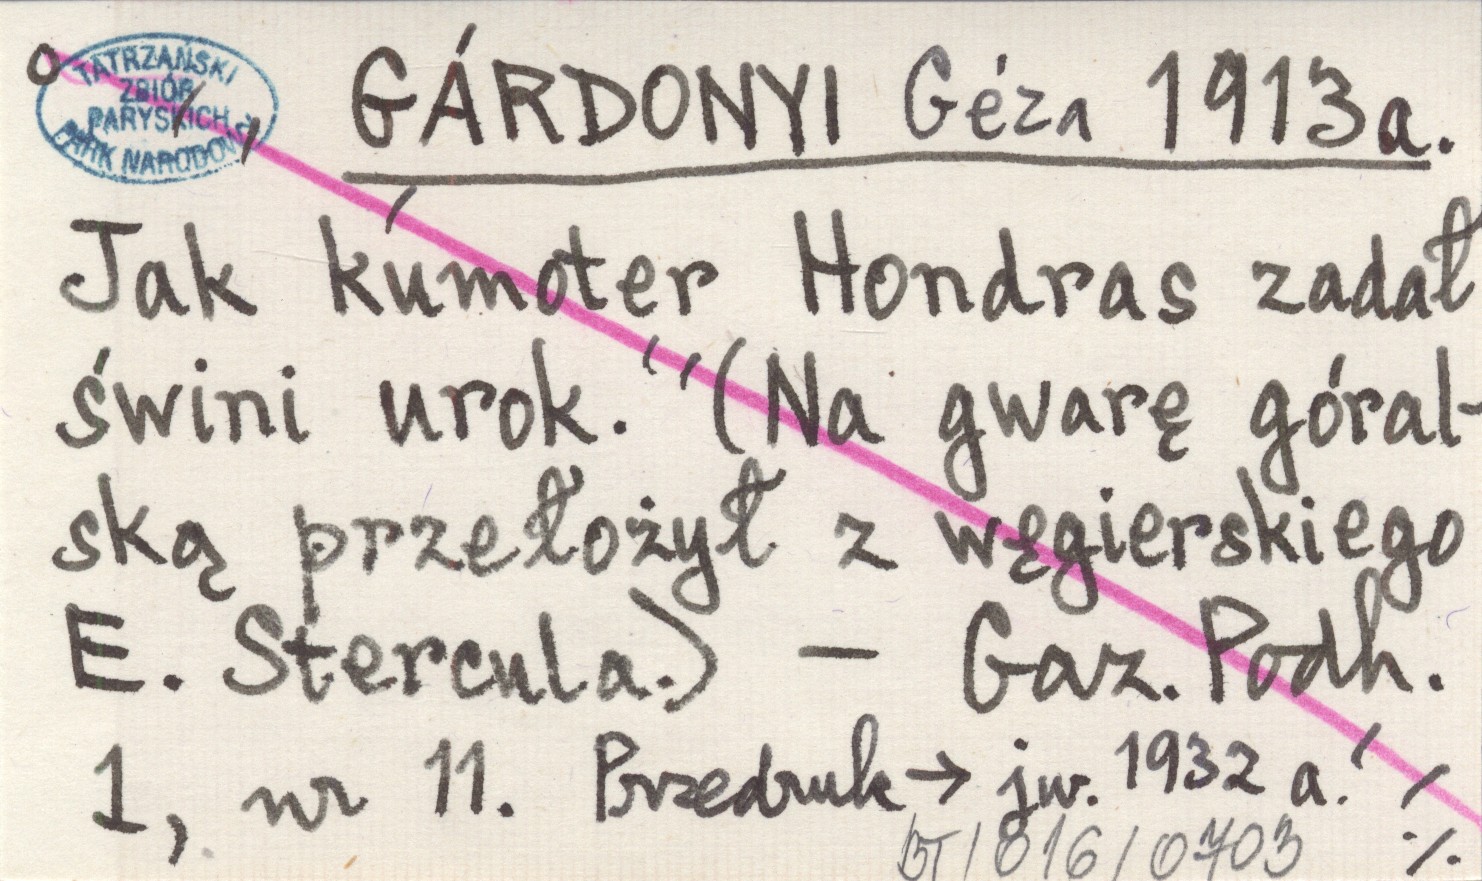 TATRZAŃSKI
ZBIÓR
PARYSKICH
PARK NARODOWY
GÁRDONYI Géza 1913a.
Jak kúmoter Hondras zadał
świni urok." (Na gwarę góral-
ską przełożył z węgierskiego
E. Stercula.) — Gaz. Podh.
1, nr 11. Przedruk → jw. 1932 a.
BT/816/0703 ·/.